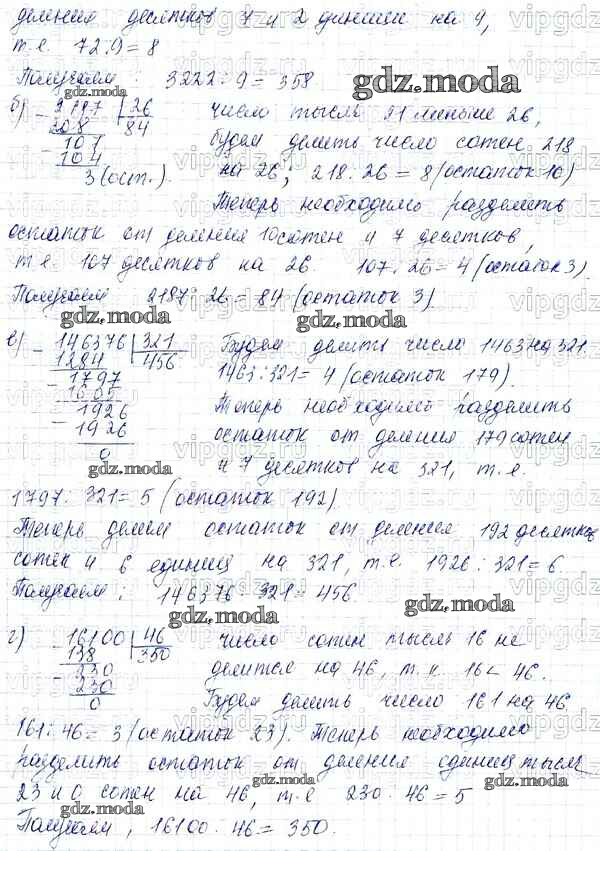 деления десятков 7 и 2 единиц на 9,
т.е. 72:9=8
Получаем: 3222:9=358
б) 2187 | 26
208 | 84
107
104
3 (ост.)
число тысяч 21 меньше 26,
будем делить число сотен 218
на 26; 218:26=8 (остаток 10)
Теперь необходимо разделить
остаток от деления 10 сотен и 7 десятков,
т.е. 107 десятков на 26. 107:26=4 (остаток 3).
Получаем 2187:26=84 (остаток 3)
в) 146376 | 321
1284 | 456
1797
1605
1926
1926
0
Будем делить число 1463 на 321.
1463:321=4 (остаток 179).
Теперь необходимо разделить
остаток от деления 179 сотен
и 7 десятков на 321, т.е.
1797:321=5 (остаток 192).
Теперь делим остаток от деления 192 десятков
сотен и 6 единиц на 321, т.е. 1926:321=6.
Получаем: 146376:321=456.
г) 16100 | 46
138 | 350
230
230
0
число сотен тысяч 16 не
делится на 46, т.к. 16<46.
Будем делить число 161 на 46
161:46=3 (остаток 23). Теперь необходимо
разделить остаток от деления единиц тысяч
23 и 0 сотен на 46, т.е 230:46=5
Получаем, 16100:46=350.
gdz.moda
gdz.moda
gdz.moda
gdz.moda
gdz.moda
gdz.moda
gdz.moda
gdz.moda
gdz.moda
gdz.moda
gdz.moda
vipgdz.ru